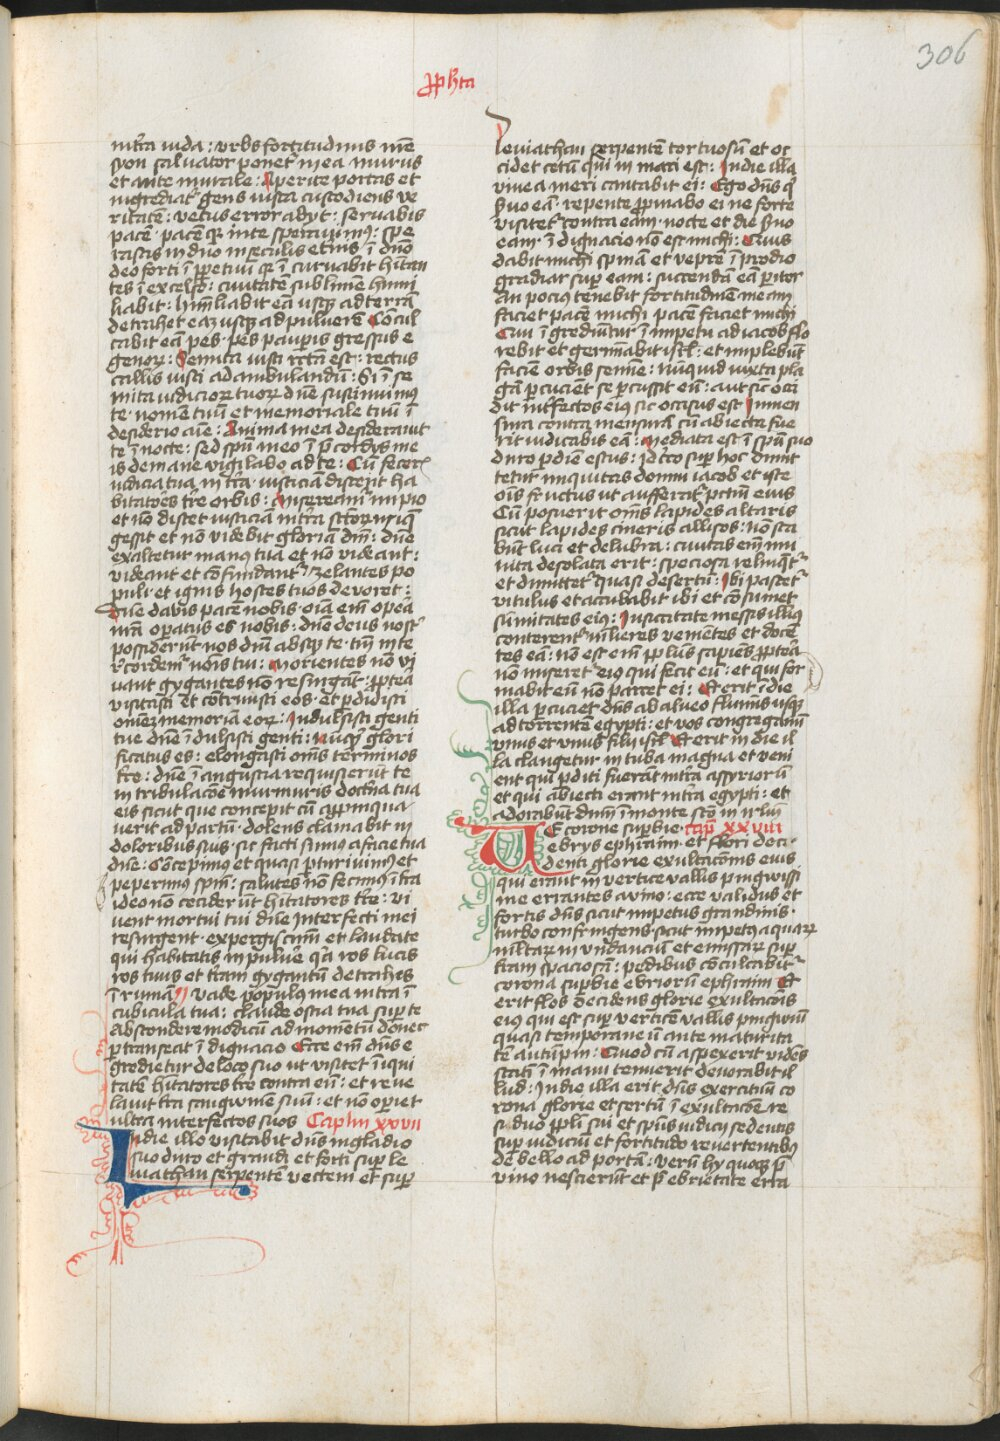 306
ꝓph̄ta
int̄ra iuda : vrbs fortitudinis nr̄e
syon saluator ponet᷑ in ea murus
et ante murale : Aperite portas et
ingrediat᷑ gens iusta custodiens ve
ritatem : vetus error abyt : seruabis
pacē · pacē qꝛ in te sperauimꝰ : spe
rastis in dno in seculis eternis ī dn̄o
deo forti ī ꝑpetuū qꝛ ī curuabit hītan
tes ī excelso : ciuitatem sublimem humi
liabit : hūīliabit eā usqꝫ ad terrā
detrahet eaꝫ usqꝫ ad puluerē Concul
cabit eā pes · pes pauꝑis gressus e
genoꝝ : Semita iusti rc̄ta est : rectus
callis iusti ad ambulandū : Et ī se
mita iudicioꝝ tuoꝝ dn̄e sustinuimꝰ
te · nomē tuū et memoriale tuū ī
desiderio aīe : Anima mea desiderauit
te ī nocte : sed spū meo ī p̄cordys me
is de mane vigilabo ad te : Cū fecer᷑
iudicia tua in t̄ra · iusticiā discent ha
bitatores tr̄e orbis : Misereamꝰ impio
et nō discet iusticiā in t̄ra sctōꝝ iniq̄
gessit et nō videbit gloriā dnī : dn̄e
exaltetur manꝰ tua et nō videant :
videant et confundant᷑ zelantes po
puli et ignis hostes tuos deuoret :
Dn̄e dabis pacē nobis · oīa em̄ opeā
nr̄a operatus es nobis : dn̄e deus nost᷑
possiderūt nos dnī absqꝫ te · tm̄ in te
recordemꝰ noīs tui : morientes nō vi
uant gygantes nō resurgāt : ꝓptea
visitasti et contriuisti eos · et ꝑdidisti
omnē memoriā eoꝝ : Indulsisti genti
tue dn̄e īdulsisti genti : nūcqͥd glori
ficatus es : elongasti om̄s terminos
tr̄e : dn̄e ī angustia requisierūt te
in tribulacōe murmuris doctrīa tua
eis sicut que concepit cū appinqua
uerit ad partū · dolens clamabit in
doloribus suis · sic facti sumus a facie tua
dn̄e : Cōcepimus et quasi ꝑturiuimꝰ et
peperimꝰ spm̄ : salutes nō fecimꝰ ī t̄ra
ideo nō ceciderūt hītatores tr̄e : vi
uent mortui tui dn̄e interfecti mei
resurgent · expergiscīmī et laudate
qui habitatis in puluē qꝛ ros lucis
ros tuus et t̄ram gygantū detrahes
ī ruinā vade populꝰ meꝰ intra ī
cubicula tua : claude ostia tua suꝑ te
Abscondere modicū ad momentū donec
ꝑtranseat ī dignacio Ecce em̄ dn̄s e
gredietur de loco suo ut visitet īiqui
tatē hītatores tr̄e contra eū : et reue
labit t̄ra sanguinem suū : et nō oꝑiet
ultra interfectos suos Caplm xxvii
In die illo visitabit dn̄s in gladio
suo duro et grandi et forti suꝑ le
uiathan serpentē vectem et suꝑ
leuiathan serpentē tortuosū et oc
cidet cetū qui in mari est : In die illa
vinea meri cantabit ei : Ego dn̄s qͥ
s̄uo eā · repente ꝓpinabo ei ne forte
visitet᷑ contra eam · nocte et die s̄uo
eam · ī dignacio nō est michi : Quis
dabit michi spinā et veprē ī prelio
gradiar suꝑ eam : succendā eā ꝑiter
An pocius tenebit fortitudinē meam
faciet pacē michi pacē faciet michi
Qui ī grediūtur ī impetu ad iacob flo
rebit et germīabit isrl̄ : et implebūt
faciē orbis semīe : nūquid iuxta pla
gā ꝑcucient se ꝑcussit eū : aut sic occi
dit int̄fectos eiꝰ sic occisus est In men
sura contra mensurā cū abiecta fue
rit iudicabis eā : mediata est ī spū suo
duro ꝑ diē estus : Idcirco suꝑ hoc dimit
tetur iniquitas domui iacob et iste
oīs fructus ut aufferat᷑ pctm̄ eius
Cū posuerit om̄s lapides altaris
sicut lapides cineris allisos : nō sta
būt luci et delubra : ciuitas em̄ mu
nita desolata erit : speciosa relinqͥt᷑
et dimittet᷑ quasi desertū : Ibi pascet᷑
vitulus et accubabit ibi et consumet
sūmitates eiꝰ : In siccitate messis illiꝰ
conterent᷑ mulieres veniētes et docē
tes eā : nō est em̄ ppl̄us sapiēs ꝓpterā
nō miseret᷑ eiꝰ qui fecit eū : et qui for
mabit eū nō parcet ei : Et erit ī die
illa ꝑcuciet dn̄s ab alueo flumīs usqꝫ
ad torrentē egypti : et vos congregamī
vnus et vnus filij isrl̄ Et erit in die il
la clangetur in tuba magna et veni
ent qui ꝑditi fuerāt int̄ra assyrioꝝ
et qui abiecti erant int̄ra egypti : et
adorabūt dnm̄ ī monte sctō in irlm̄
Ue corone suꝑbie cap̄ xxviii
ebrys ephraim · et flori deci
denti glorie exultacōnis eius
qui erant in vertice vallis pingwissi
me errantes a vino : ecce validus et
fortis dn̄s sicut impetus grandinis ·
turbo confringens · sicut impetꝰ aquaꝝ
multaꝝ in vndanciū et emissaꝝ suꝑ
t̄ram spaciosā : pedibus conculcabit᷑
corona suꝑbie ebrioꝝ ephraim Et
erit flos decidens glorie exultacōis
eiꝰ qui est suꝑ verticē vallis pinguiū
quasi temporaneū ante maturita
tē autūpni : Quod cū aspexerit videns
statī ī manu tenuerit deuorabit il
lud : In die illa erit dn̄s exercituū co
rona glorie et sertū ī exultacōe re
siduo ppl̄i sui et spūs iudicij sedentis
suꝑ iudiciū et fortitudo reuertentibꝰ
de bello ad portā : verū hy quoqꝫ p̄
vino nescierūt et p̄ ebrietate erra